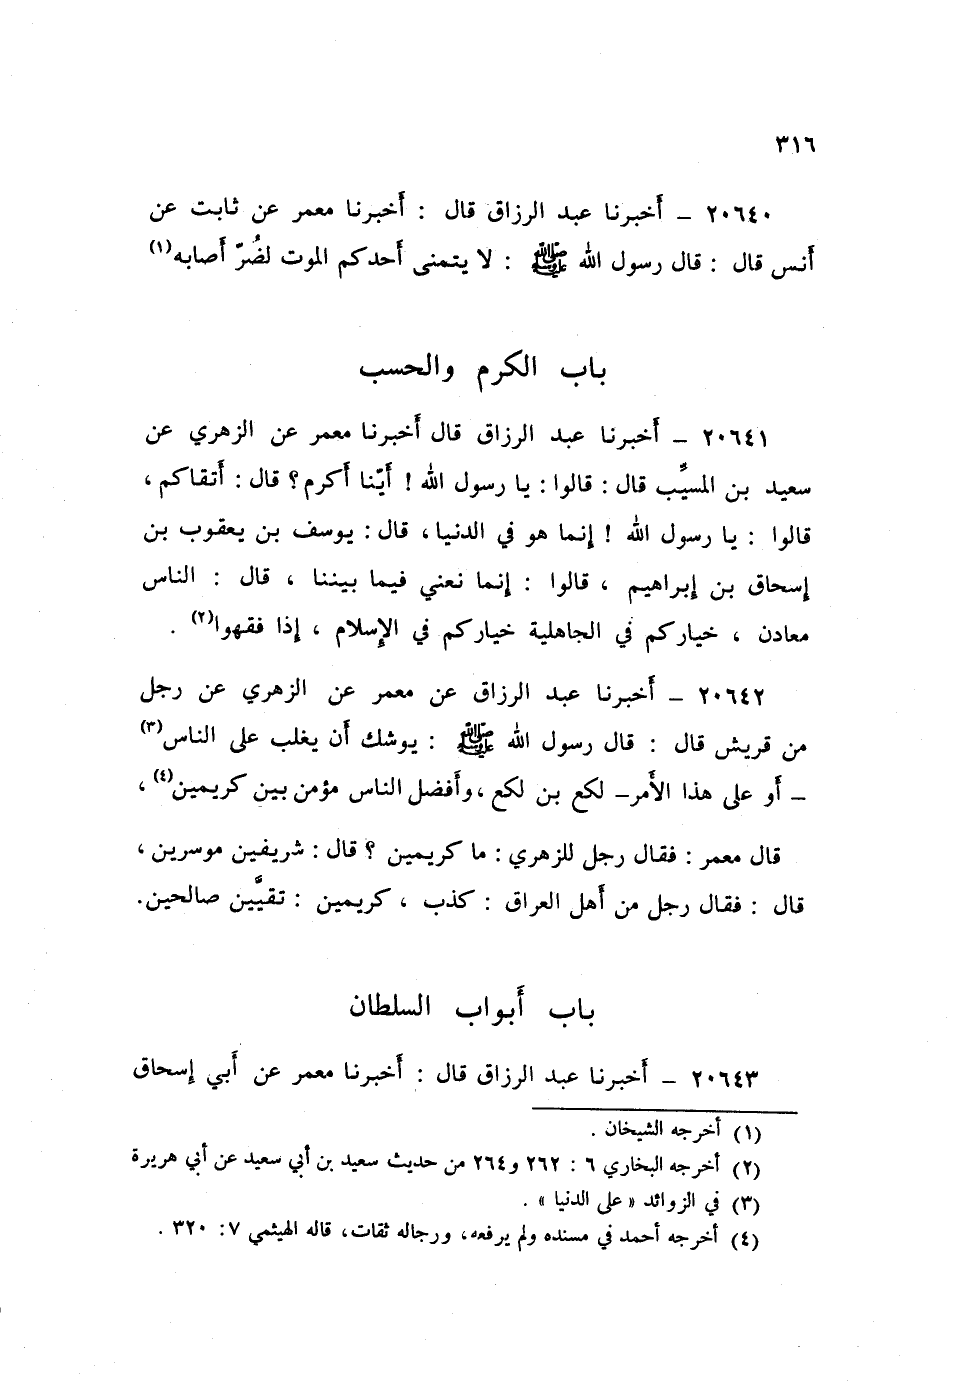 ٣١٦
٢٠٦٤٠ – أخبرنا عبد الرزاق قال : أخبرنا معمر عن ثابت عن
أنس قال : قال رسول الله ﷺ : لا يتمنى أحدكم الموت لضُرّ أصابه(١)
باب الكرم والحسب
٢٠٦٤١ – أخبرنا عبد الرزاق قال أخبرنا معمر عن الزهري عن
سعيد بن المسيَّب قال : قالوا : يا رسول الله ! أيّنا أكرم ؟ قال : أتقاكم ،
قالوا : يا رسول الله ! إنما هو في الدنيا ، قال : يوسف بن يعقوب بن
إسحاق بن إبراهيم ، قالوا : إنما نعني فيما بيننا ، قال : الناس
معادن ، خياركم في الجاهلية خياركم في الإسلام ، إذا فقهوا(٢) .
٢٠٦٤٢ – أخبرنا عبد الرزاق عن معمر عن الزهري عن رجل
من قريش قال : قال رسول الله ﷺ : يوشك أن يغلب على الناس(٣)
– أو على هذا الأمر– لكع بن لكع ، وأفضل الناس مؤمن بين كريمين(٤) ،
قال معمر : فقال رجل للزهري : ما كريمين ؟ قال : شريفين موسرين ،
قال : فقال رجل من أهل العراق : كذب ، كريمين : تقيَّين صالحين.
باب أبواب السلطان
٢٠٦٤٣ – أخبرنا عبد الرزاق قال : أخبرنا معمر عن أبي إسحاق
(١) أخرجه الشيخان .
(٢) أخرجه البخاري ٦ : ٢٦٢ و٢٦٤ من حديث سعيد بن أبي سعيد عن أبي هريرة
(٣) في الزوائد « على الدنيا » .
(٤) أخرجه أحمد في مسنده ولم يرفعه، ورجاله ثقات، قاله الهيثمي ٧: ٣٢٠ .